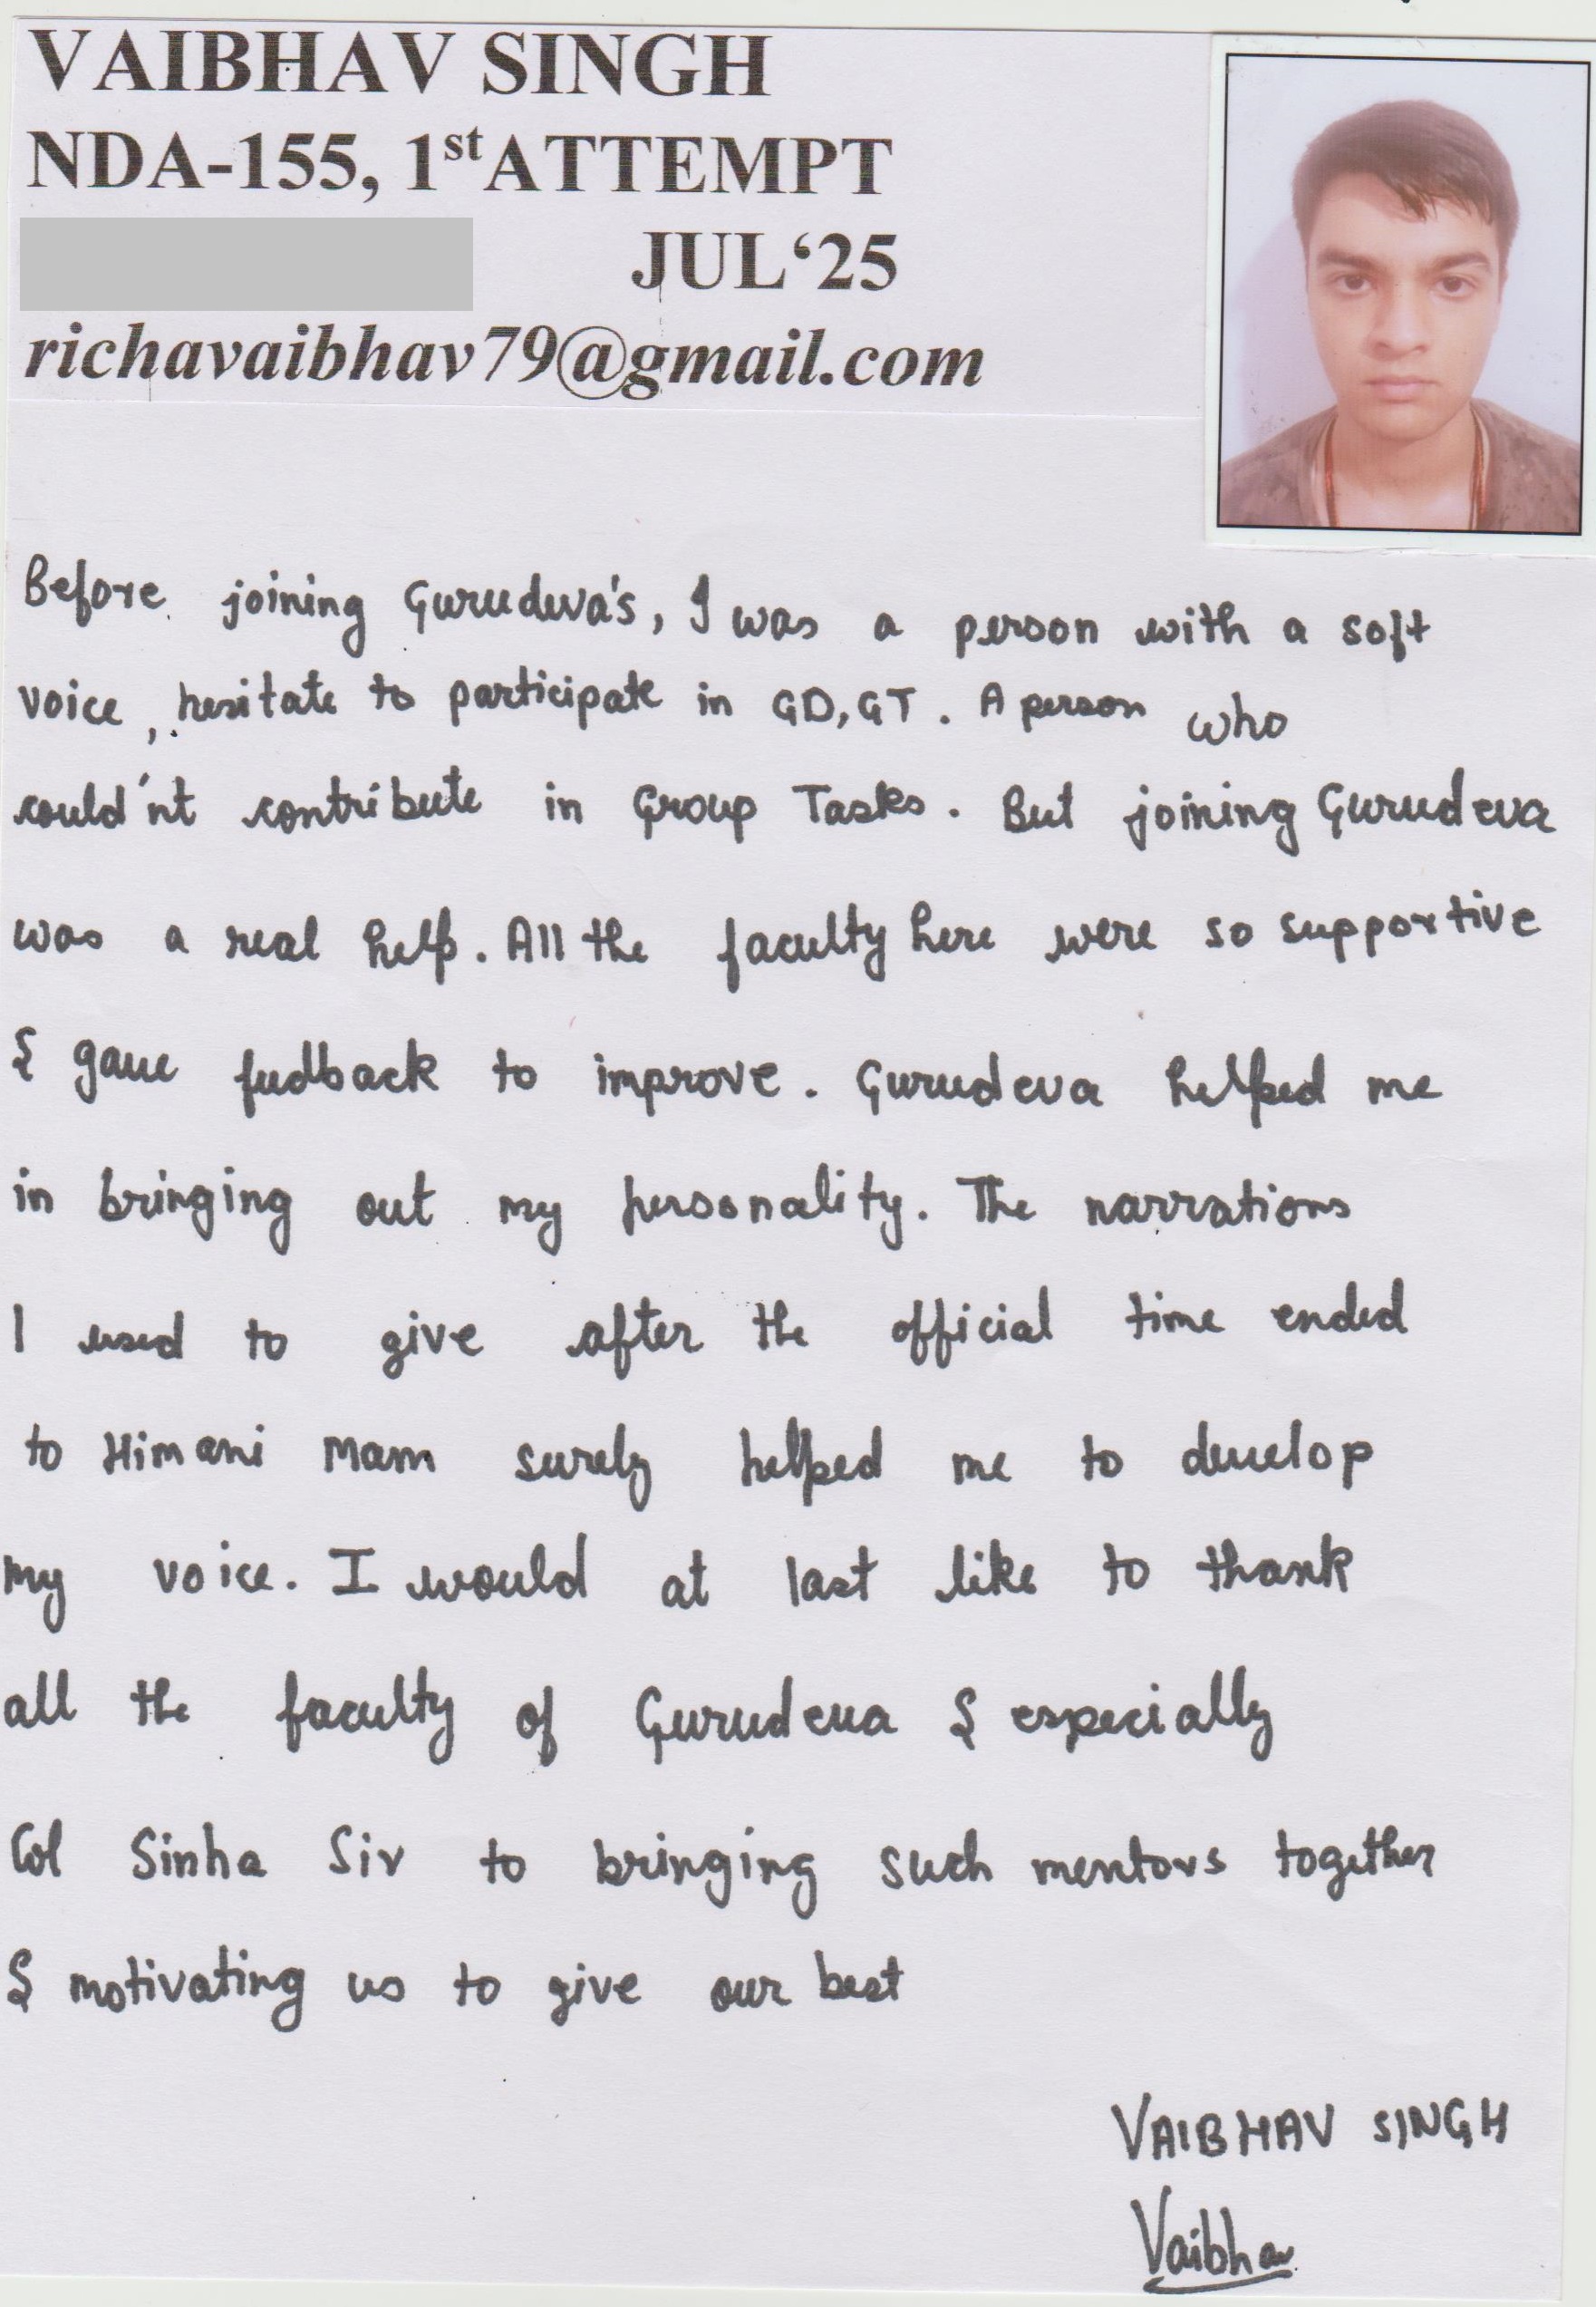 VAIBHAV SINGH
NDA-155, 1st ATTEMPT
JUL‘25
richavaibhav79@gmail.com
Before joining Gurudeva's, I was a person with a soft
voice, hesitate to participate in GD, GT. A person who
could'nt contribute in Group Tasks. But joining Gurudeva
was a real help. All the faculty here were so supportive
& gave feedback to improve. Gurudeva helped me
in bringing out my personality. The narrations
I used to give after the official time ended
to Himani Mam surely helped me to develop
my voice. I would at last like to thank
all the faculty of Gurudeva & especially
Col Sinha Sir to bringing such mentors together
& motivating us to give our best
VAIBHAV SINGH
Vaibhav